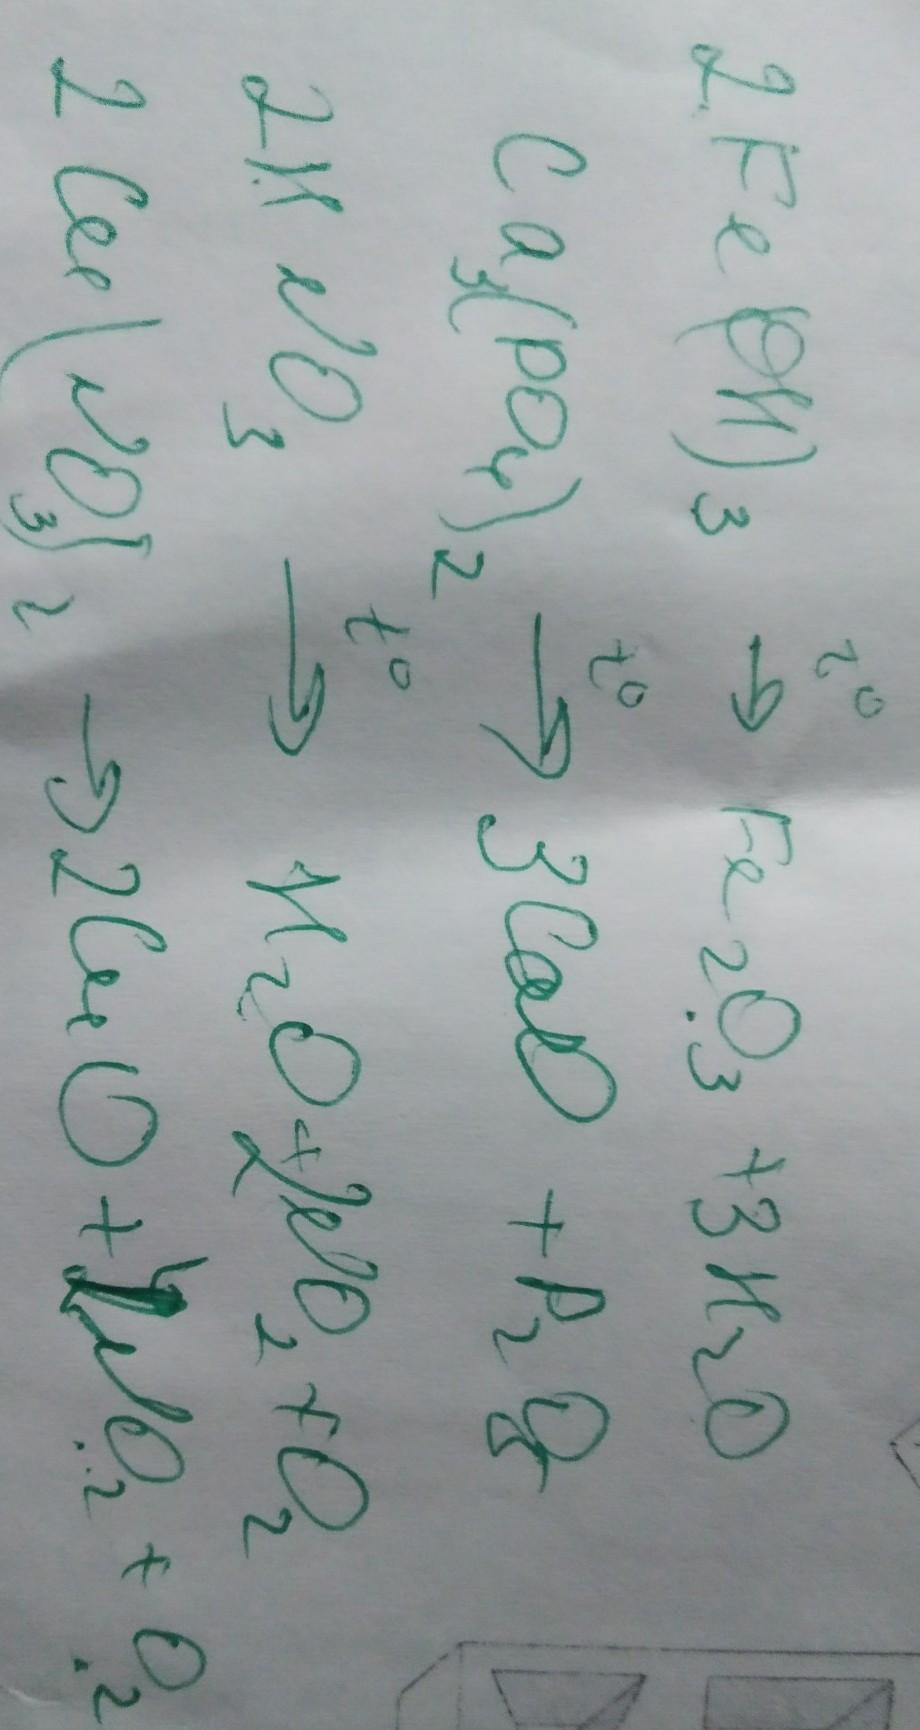 2Fe(OH)3 t° → Fe2O3 + 3H2O
Ca3(PO4)2 t° → 3CaO + P2O5
2HNO3 t° → H2O + 2NO2 + O2
2Cu(NO3)2 → 2CuO + 4NO2 + O2